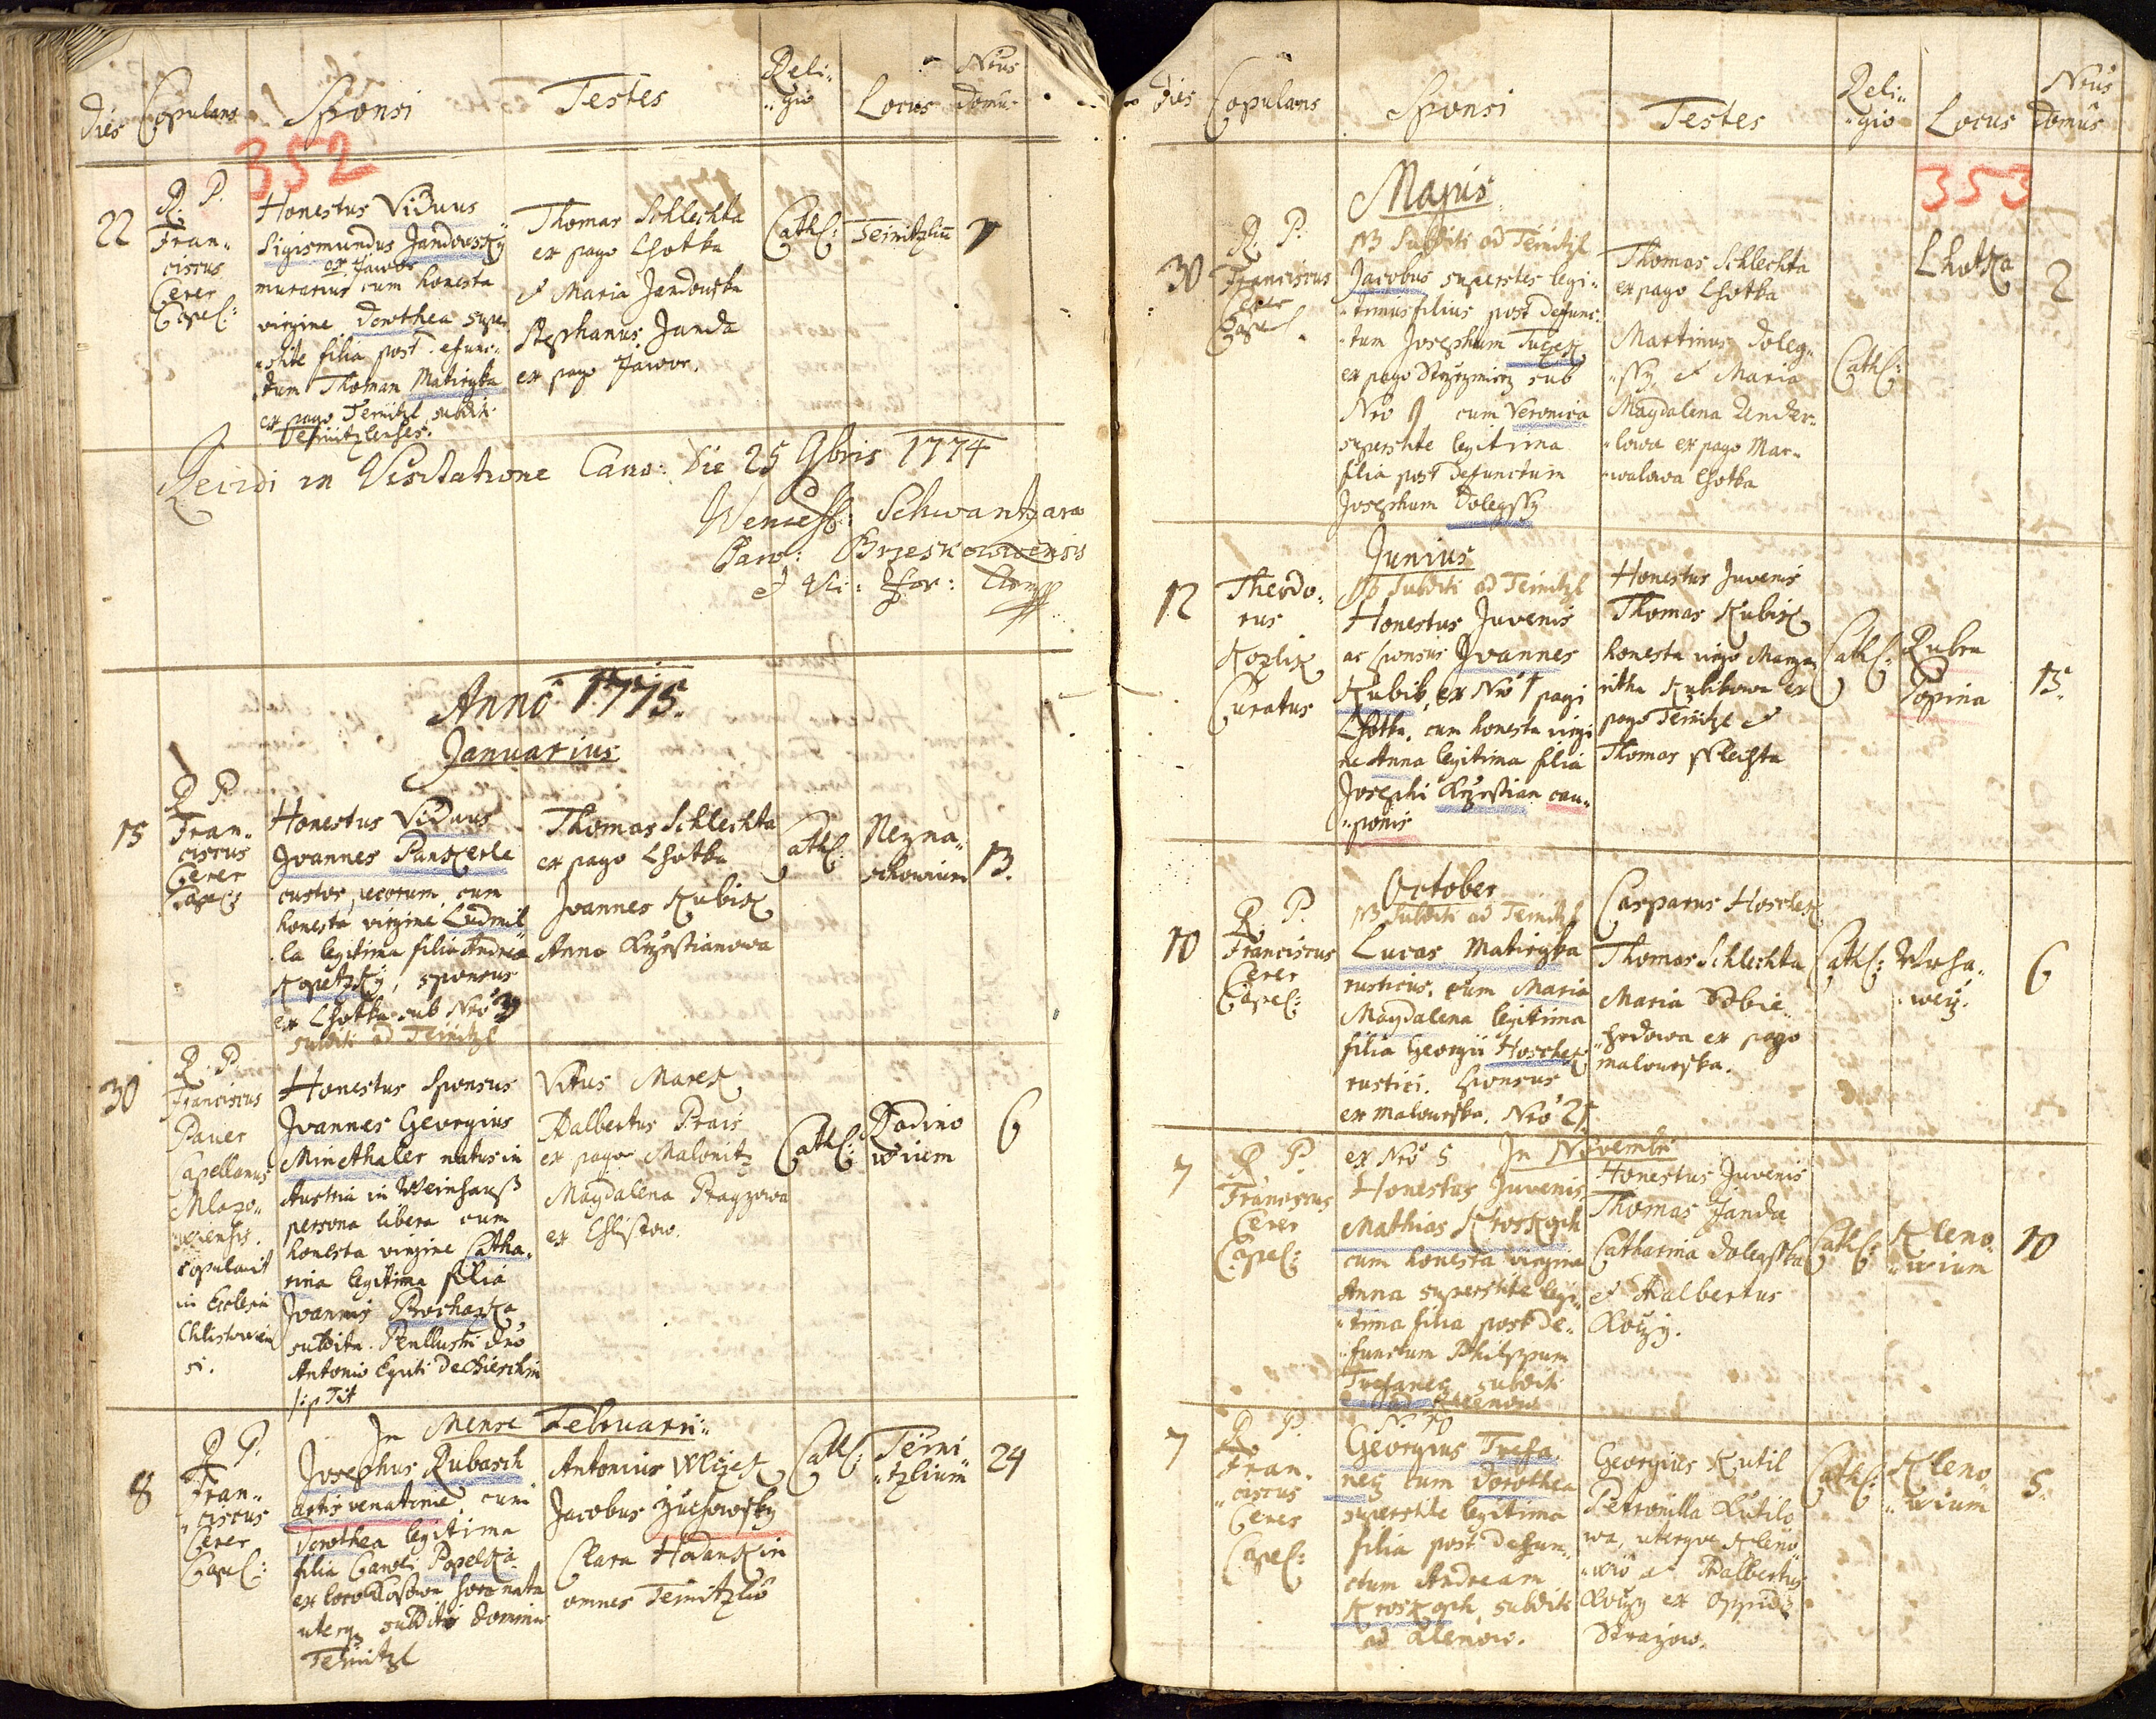 Dies Copulans Sponsi Testes Reli-
gio Locus Nrus
Domus
352
22
R. P.
Fran-
ciscus
Cerer
Capel:
Honestus Viduus
Sigismundus Jandowsky
ex Jawor
murarius cum honesta
virgine Dorothea supe
stite filia post
tum Thomam Matieyka
ex pago Teinitzl subditi
Teinitzlenses.
Thomas Schlechta
ex pago Lhotka
et Maria Jandowska
Stephanus Janda
ex pago Jawor.
Cath: Teinitzliu 7
Recidi in Visitatione Cano: Die 25 9bris 1774
Wencesl: Schwantzara
Paro: Brzeskowicensis
et Vic: For:
Anno 1775.
Januarius
15
R P.
Fran-
ciscus
Cerer
Capel:
Honestus Viduus
Joannes Panzerle
custos pecorum cum
honesta virgine Ludmil
la legitima filia Andreæ
Kopetzky, sponsus
ex Lhotka sub Nro 39
subditi ad Teinitzl
Thomas Schlechta
ex pago Lhotka
Joannes Kubik
Anna Krzestianowa
Cath: Nezna-
schowium 13.
30
R. P.
Franciscus
Paver
Capellanus
Mlazo-
wiensis.
copulavit
in Ecclesia
Chlistowien
si.
Honestus Sponsus
Joannes Georgius
Minethaler natus in
Austria in Weinhauß
persona libera cum
honesta virgine Catha-
rina legitima filia
Joannis Prochaska
subdita Perillustri Dno
Antonio Equiti de Bieschin
p: Tit
Vitus Marek
Adalbertus Prais
ex pago Malonitz
Magdalena
ex Chlistow.
Cath: Radino
wium 6
In Mense Februarii
8
R P.
Fran-
ciscus
Cerer
Capel:
Josephus Rubasch
artis venatoriæ, cum
Dorothea legitima
filia Caroli Popelka
ex loco nata
uterq subditi Dominii
Teinitzl
Antonius Wlczek
Jacobus Zuchowsky
Clara Hodanskin
omnes Teinitzlio
Cath: Teini
tzlium 24
Dies Copulans Sponsi Testes Reli-
gio Locus Nrus
Domûs
353
Majus
30
R. P.
Franciscus
Cerer
Capel.
NB Subditi ad Teinitzl
Jacobus superstes legi-
timus filius post defunc-
tum Josephum Tuczek
ex pago Strzezmierz sub
Nro 9 cum Veronica
superstite legitima
filia post defunctum
Josephum Dolegssy
Thomas Schlechta
ex pago Lhotka
Martinus Doleg-
ssy, et Maria
Magdalena Ander-
lowa ex pago Mar-
walowa Lhotka
Cath:
Lhotka 2
Junius
12
Theodo-
rus
Kozlik
Curatus
NB Subditi ad Teinitzl
Honestus Juvenis
ac sponsus Joannes
Kubik, ex Nro 1 pagi
Lhotka, cum honesta virgi
ne Anna legitima filia
Josephi Krzestian cau-
ponis
Honestus Juvenis
Thomas Kubik
honesta virgo Marga-
ritha Kubikowa ex
pago Teinitzl et
Thomas Sslechta
Cath: Rubra
Popina 13.
October
10
R. P.
Franciscus
Cerer
Capel:
NB Subditi ad Teinitzl
Lucas Matieyka
rusticus, cum Maria
Magdalena legitima
filia Georgii Hoschek
rustici. Sponsus
ex Malowska. Nro 25
Casparus Hoschek
Thomas Schlechta
Maria Sobie-
hrdowa ex pago
malowska.
Cath: Wrha-
wecz. 6
In Novembri
7
R P.
Franciscus
Cerer
Capel:
ex Nro 5
Honestus Juvenis
Mathias Kroskoph
cum honesta virgine
Anna superstite legi-
tima filia post de-
functum Philippum
Trefanecz subditi
ad Klenow
Honestus Juvenis
Thomas Janda
Catharina Dolegsska
et Adalbertus
Kauzy.
Cath: Kleno-
wium 10
7
R. P.
Fran-
ciscus
Cerer
Capel:
N. 10
Georgius Trefa
necz cum Dorothea
superstite legitima
filia post defun-
ctum Andream
Kroskoph, subditi
ad Klenow.
Georgius Kutil
Petronilla Kutilo
wa, uterque Kleno-
wio et Adalbertus
Kauzy ex oppido
Strazow.
Cath: Kleno
wium 5.